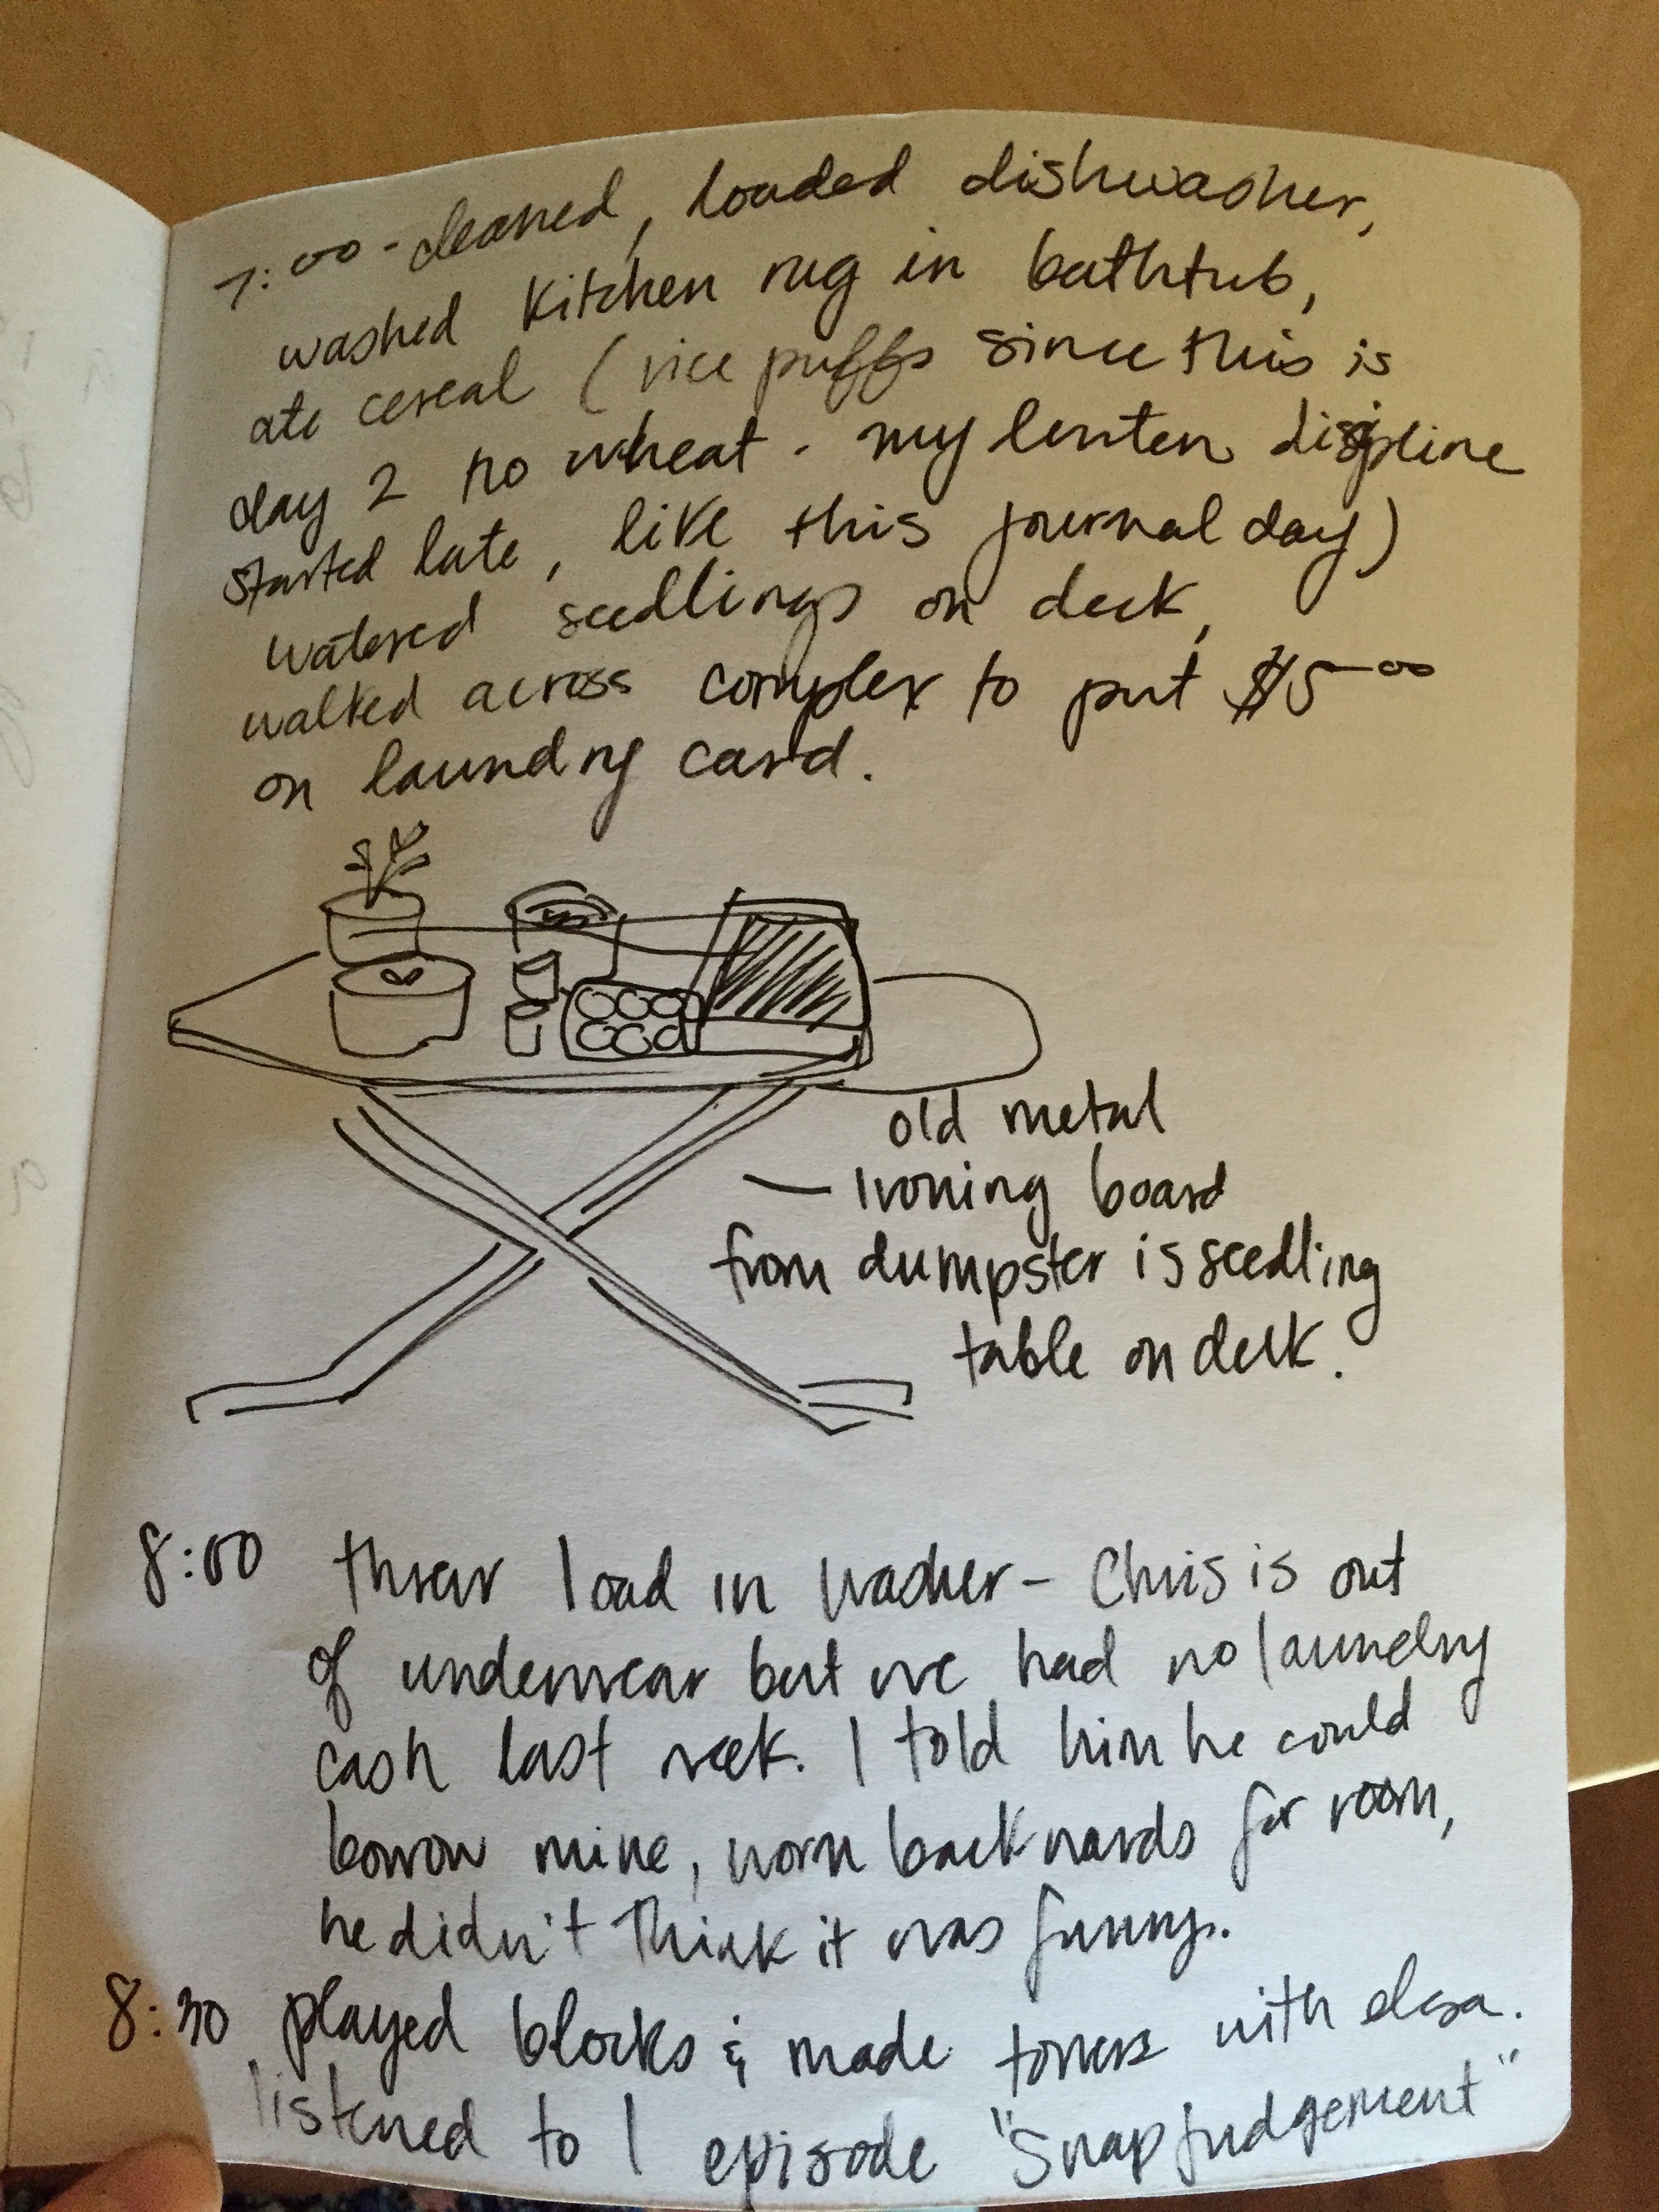 7:00 - cleaned, loaded dishwasher,
washed kitchen rug in bathtub,
ate cereal (rice puffs since this is
day 2 no wheat - my lenten disipline
started late, like this journal day)
watered seedlings on deck,
walked across complex to put $5-00
on laundry card.
old metal
— Ironing board
from dumpster is seedling
table on deck.
8:00 threw load in washer - Chris is out
of underwear but we had no laundry
cash last week. I told him he could
borrow mine, worn backwards for room,
he didn't think it was funny.
8:30 played blocks & made towers with elsa.
listened to 1 episode "Snap judgement"